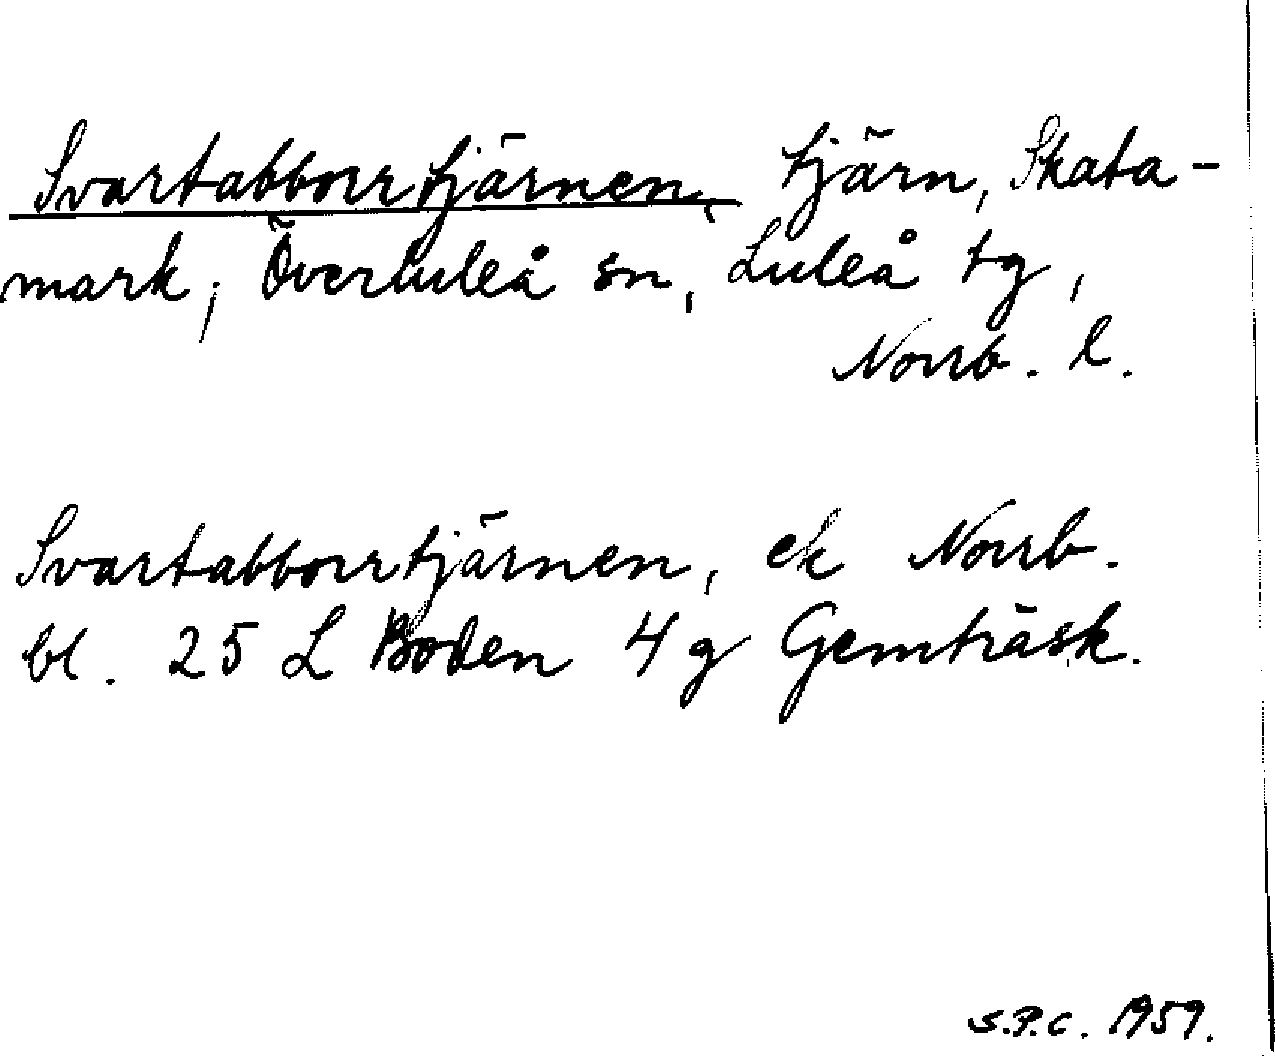 Svartabborrtjärnen, tjärn, Skata-
mark, Överluleå sn, Luleå tg,
Norrb. l.
Svartabborrtjärnen, ek Norrb.
bl. 25 L Boden 4 g Gemträsk.
S.P.C. 1959.